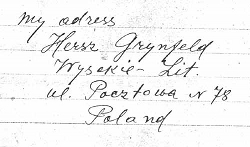 my adress
Hersz Grynfeld
Wysokie - Lit.
ul. Pocztowa N 78
Poland